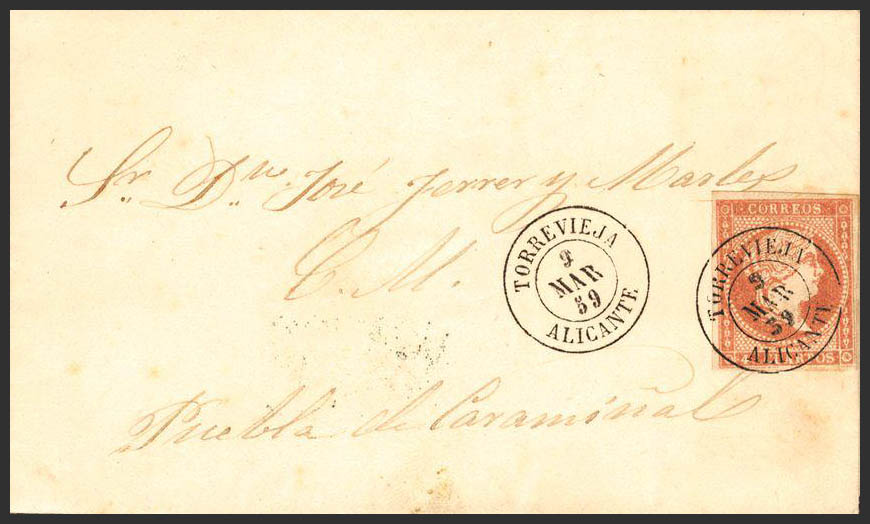 Sr. Dn. José Ferrer y Marles
C. M.
Puebla de Caramiñal
TORREVIEJA
9
MAR
59
ALICANTE
CORREOS
TORREVIEJA
9
MAR
59
ALICANTE